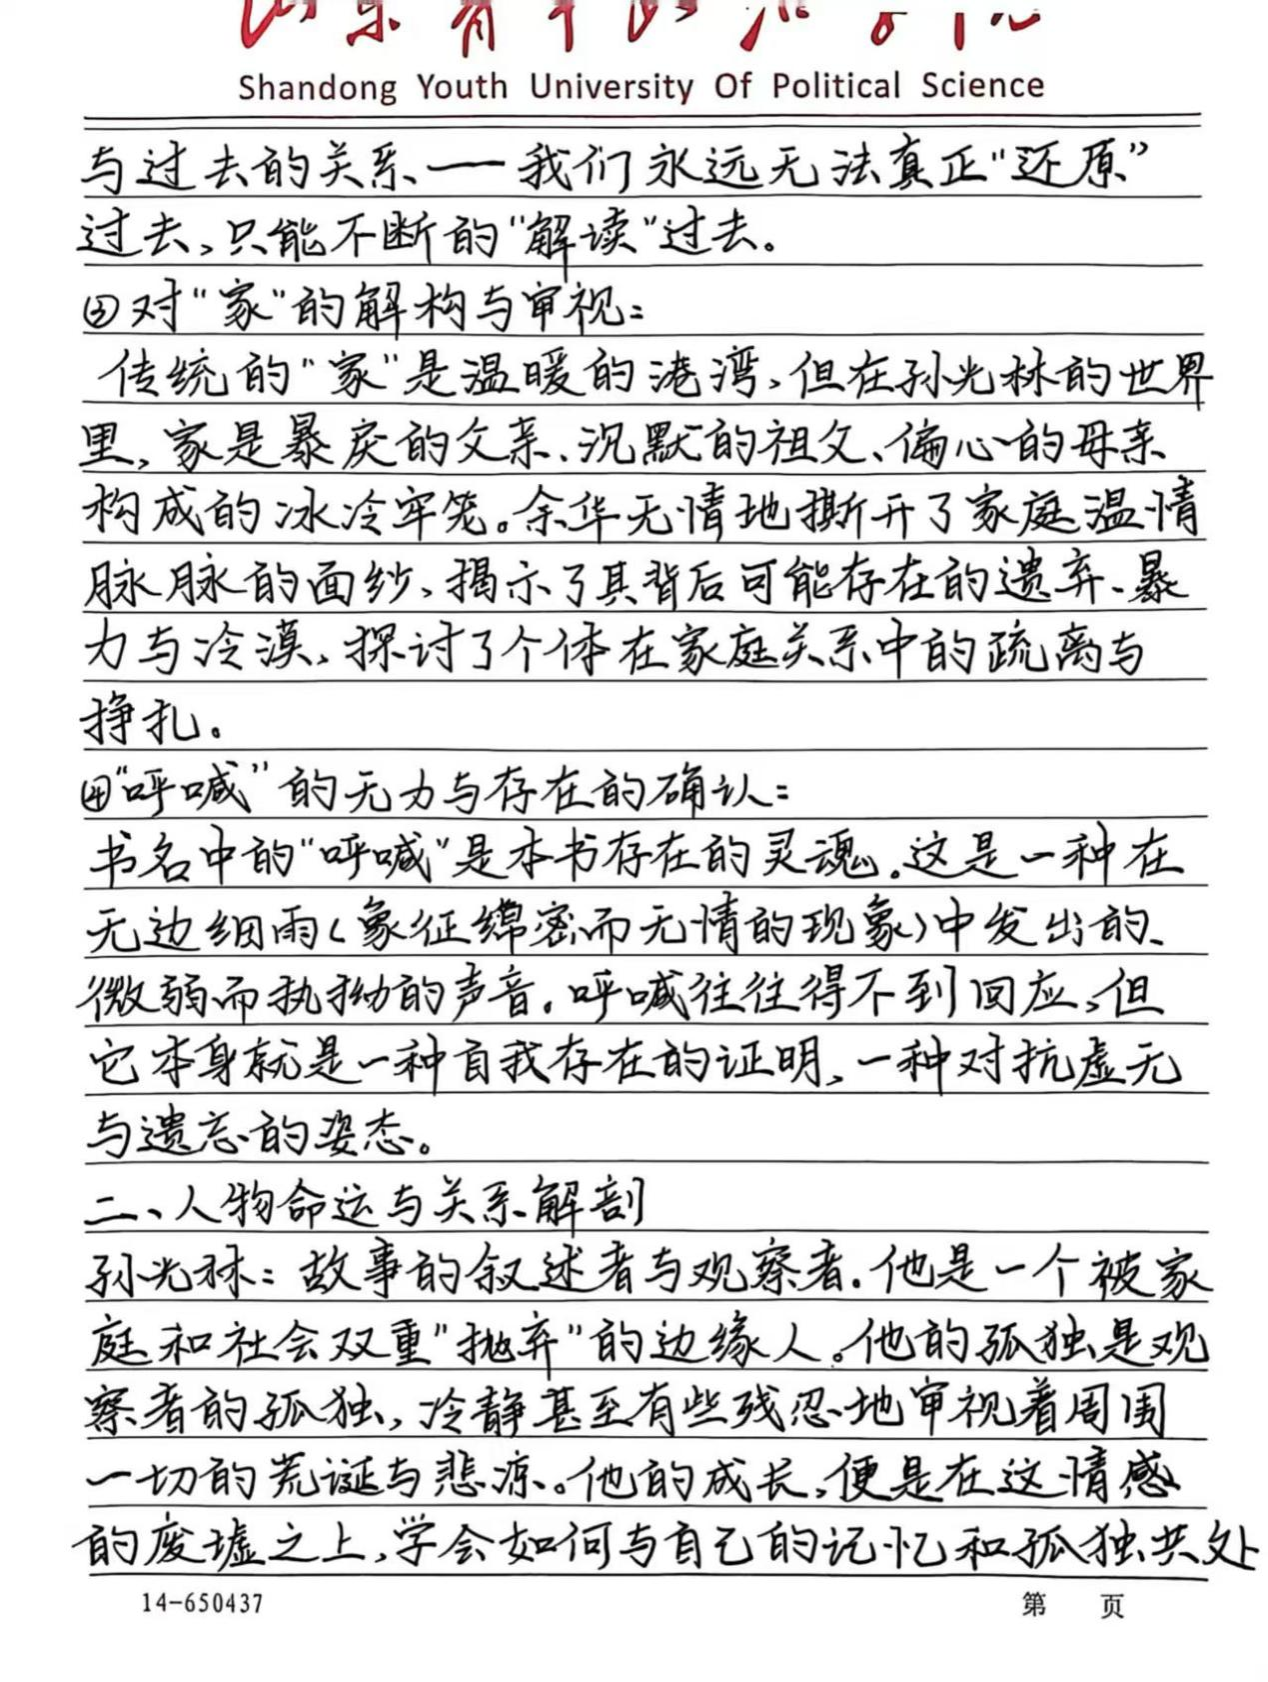 Shandong Youth University Of Political Science
与过去的关系——我们永远无法真正“还原”
过去,只能不断的“解读”过去。
③对“家”的解构与审视:
传统的“家”是温暖的港湾,但在孙光林的世界
里,家是暴戾的父亲、沉默的祖父、偏心的母亲
构成的冰冷牢笼。余华无情地撕开了家庭温情
脉脉的面纱,揭示了其背后可能存在的遗弃、暴
力与冷漠,探讨了个体在家庭关系中的疏离与
挣扎。
④“呼喊”的无力与存在的确认:
书名中的“呼喊”是本书存在的灵魂.这是一种在
无边细雨(象征绵密而无情的现象)中发出的、
微弱而执拗的声音.呼喊往往得不到回应,但
它本身就是一种自我存在的证明,一种对抗虚无
与遗忘的姿态。
二、人物命运与关系解剖
孙光林:故事的叙述者与观察者.他是一个被家
庭和社会双重“抛弃”的边缘人。他的孤独是观
察者的孤独,冷静甚至有些残忍地审视着周围
一切的荒诞与悲凉。他的成长,便是在这情感
的废墟之上,学会如何与自己的记忆和孤独共处
14-650437
第 页